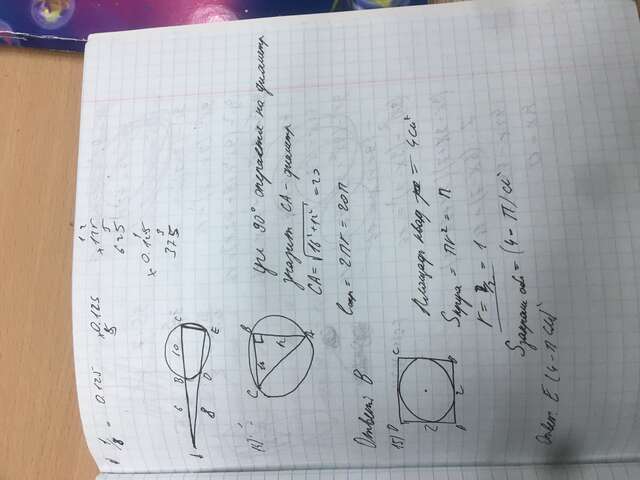 1/8 = 0.125
×0.125
5
×125
5
625
×0.125
3
375
6 B 10 C
8 D E
C B
16 12
A
угл 90° опирается на диаметр
значит CA - диаметр
CA = √16²+12² = 20
= 2πr = 20π
Ответ: B
15) D C
2
2
Площадь квад = 4см²
Sкруга = πr² = π
r = 2/2 = 1
Sзакраш обл = (4 - π) см²
Ответ: E (4 - π см)²